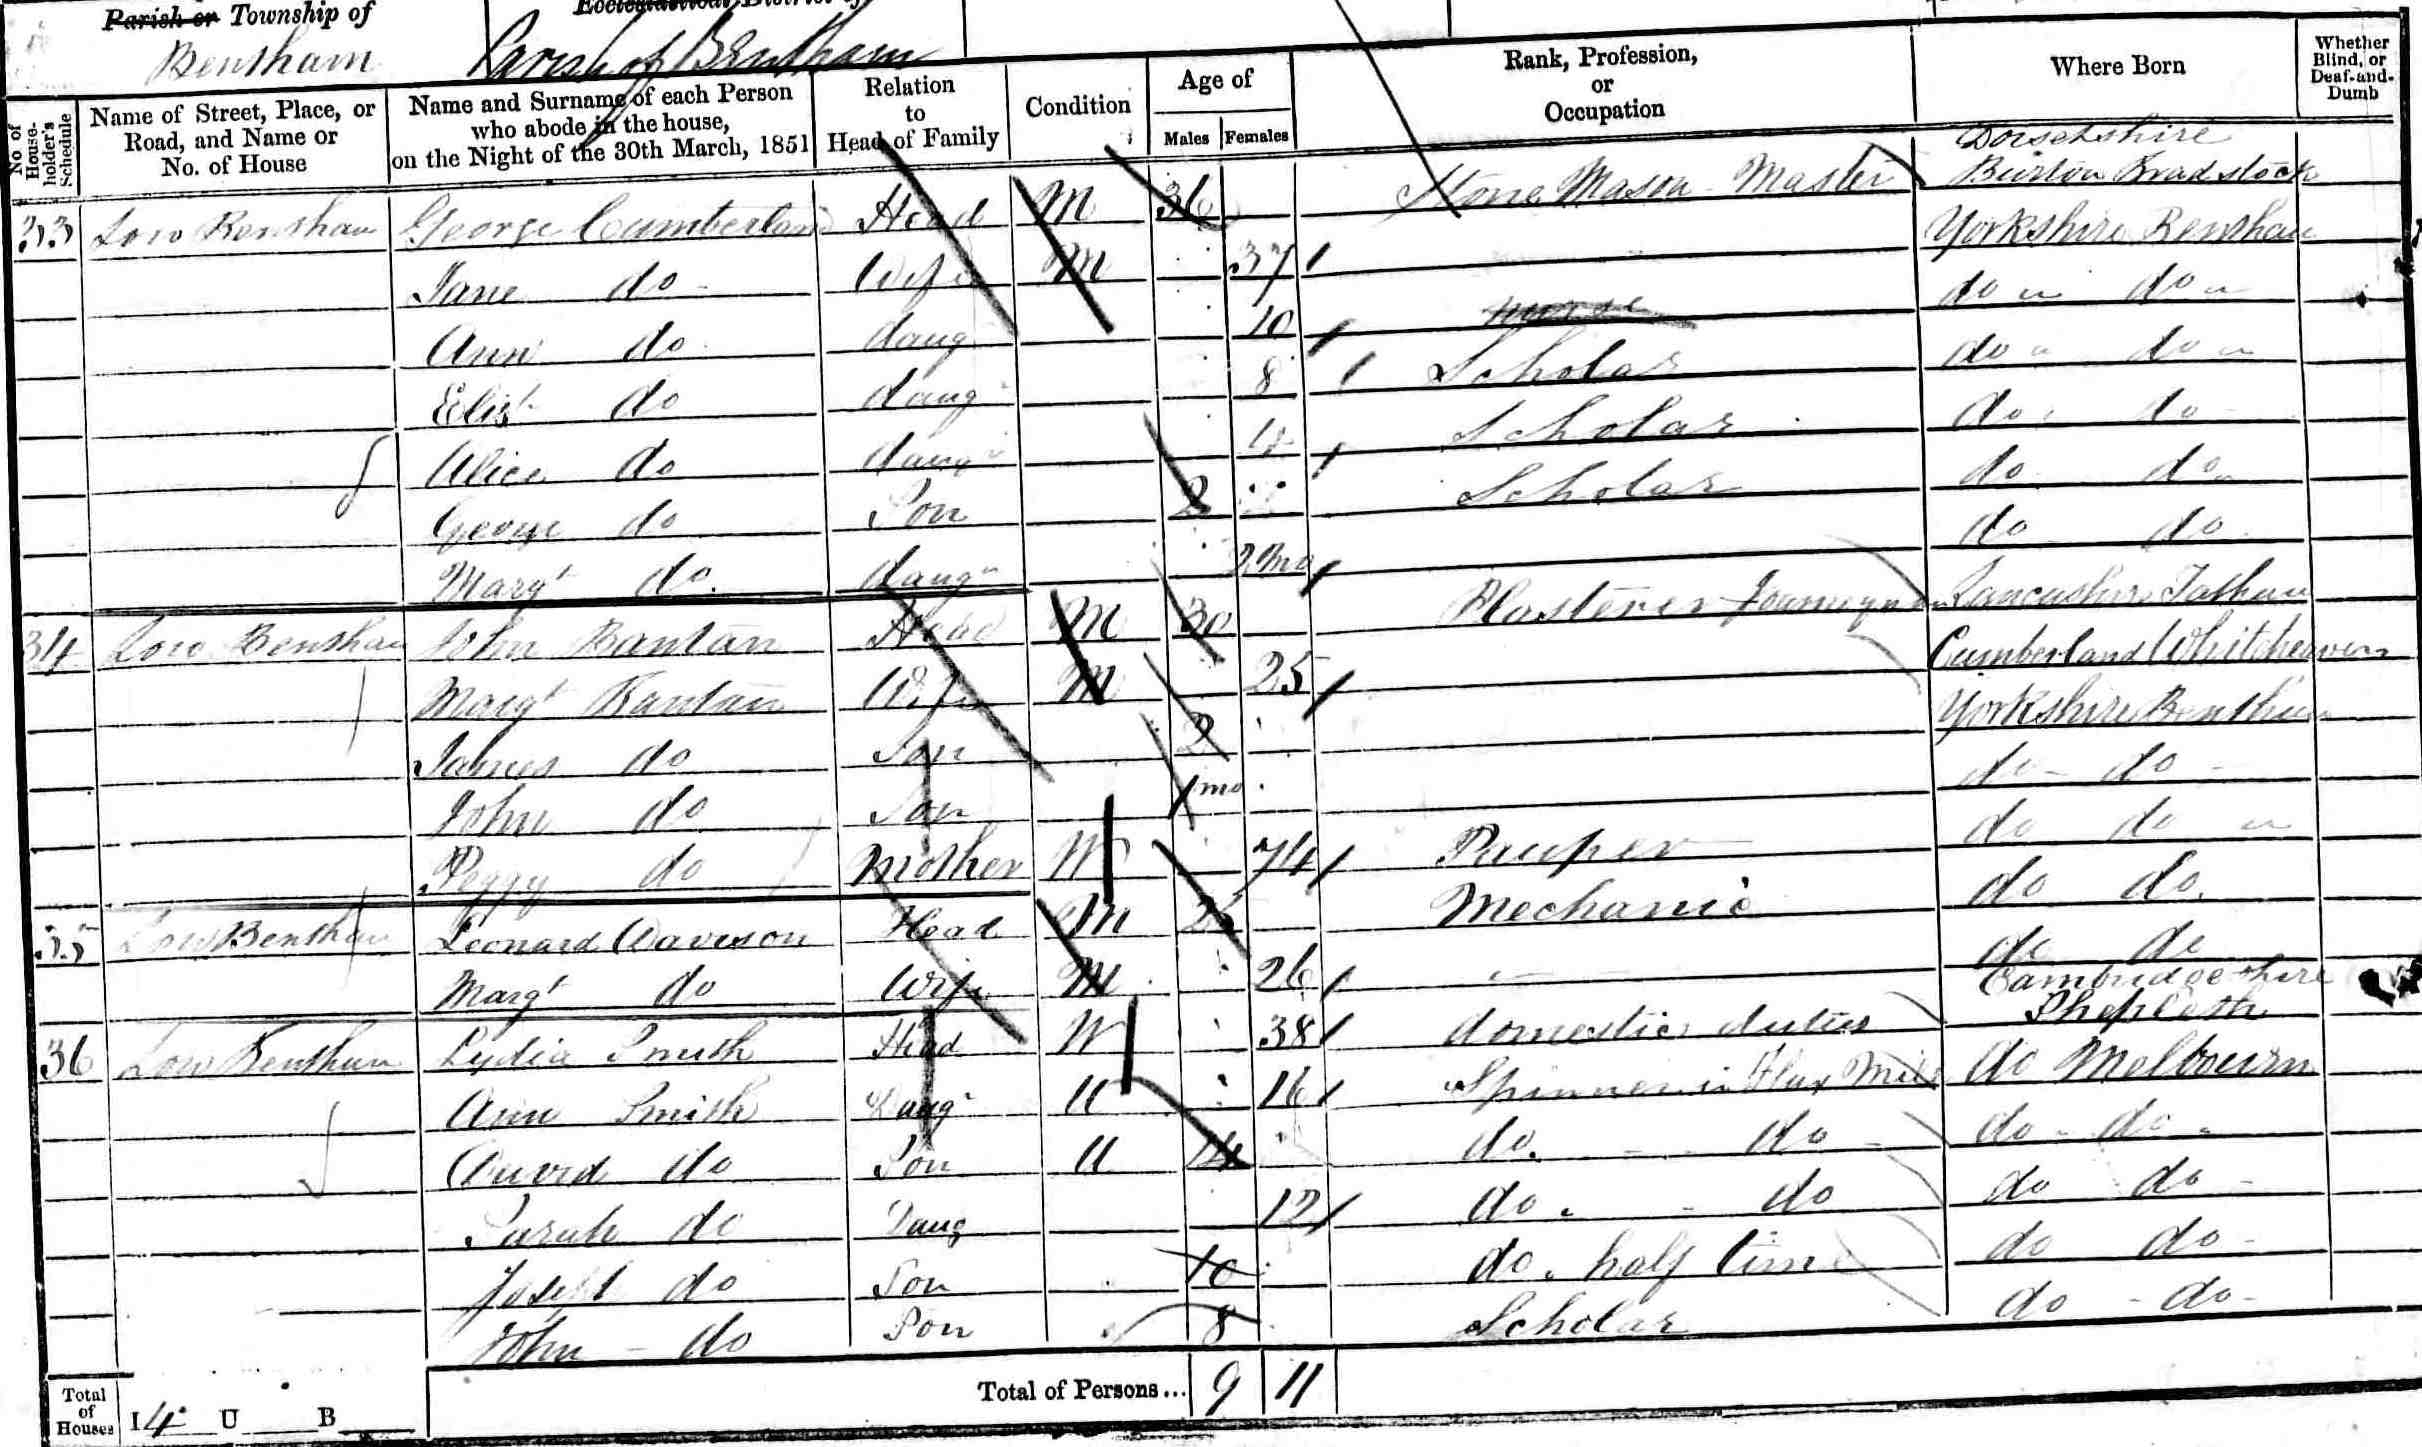 Parish or Township of
Bentham
Ecclesiastical District of
Parish of Bentham
No. of House-holder's Schedule
Name of Street, Place, or Road, and Name or No. of House
Name and Surname of each Person who abode in the house, on the Night of the 30th March, 1851
Relation to Head of Family
Condition
Age of
Males Females
Rank, Profession, or Occupation
Where Born
Whether Blind, or Deaf-and-Dumb
Dorsetshire
33 Low Bentham George Cumberland Head M 36 Stone Mason Master Burton Bradstock
Jane do Wife M 37 Yorkshire Bentham
Ann do daug 10 nurse do do
Elisth do daug 8 Scholar do do
Alice do daugr 4 Scholar do do
George do Son 2 Scholar do do
Margt do. daugr 2mo do do
34 Low Bentham John Bantan Head M 30 Plasterer Journeyman Lancashire Tatham
Margt Bantan Wife M 25 Cumberland Whitehaven
James do Son 2 Yorkshire Bentham
John do Son 1mo do do
Peggy do Mother W 74 Pauper do do
35 Low Bentham Leonard Davison Head M Mechanic do do.
Margt do Wife M 26 do do
Cambridgeshire
36 Low Bentham Lydia Smith Head W 38 domestic duties Shepreth
Ann Smith Daugr U 16 Spinner in Flax Mill do Melbourn
David do Son U 14 do. do do do
Sarah do Daug 12 do. do do do
Joseph do Son 10 do. half time do do
John do Son 8 Scholar do do
Total of Houses I 4 U B
Total of Persons... 9 11